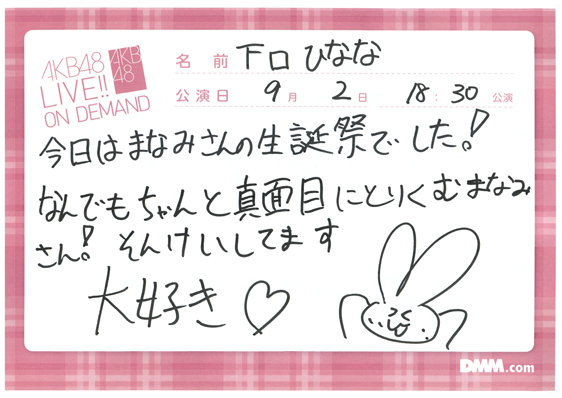 AKB48
LIVE!!
ON DEMAND
AKB
48
名前 下口ひなな
公演日 9月 2日 18:30 公演
今日はまなみさんの生誕祭でした!
なんでもちゃんと真面目にとりくむまなみ
さん! そんけいしてます
大好き♡
DMM.com